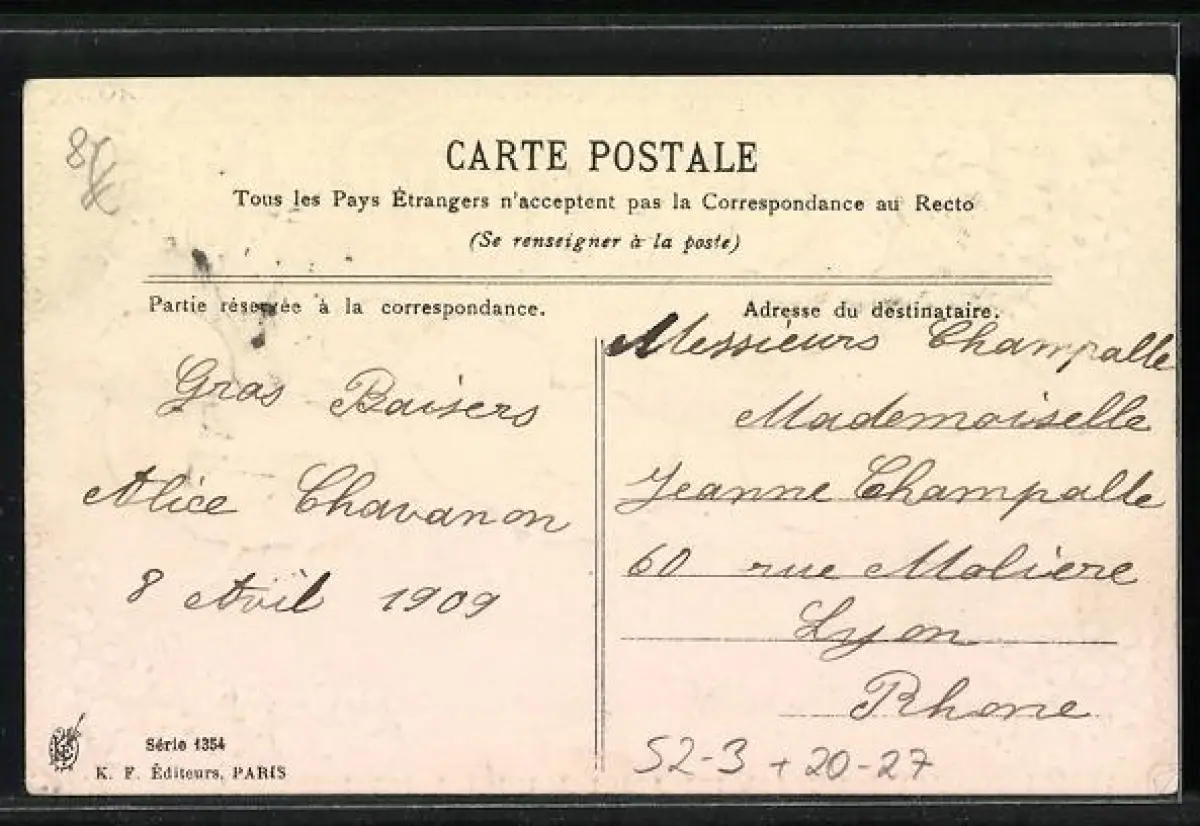 CARTE POSTALE
Tous les Pays Étrangers n'acceptent pas la Correspondance au Recto
(Se renseigner à la poste)
Partie réservée à la correspondance.
Gros Baisers
Alice Chavanon
8 Avil 1909
Série 1354
K. F. Éditeurs, PARIS
Adresse du destinataire.
Messieurs Champalle
Mademoiselle
Jeanne Champalle
60 rue Moliere
Lyon
Rhone
52-3 + 20-27